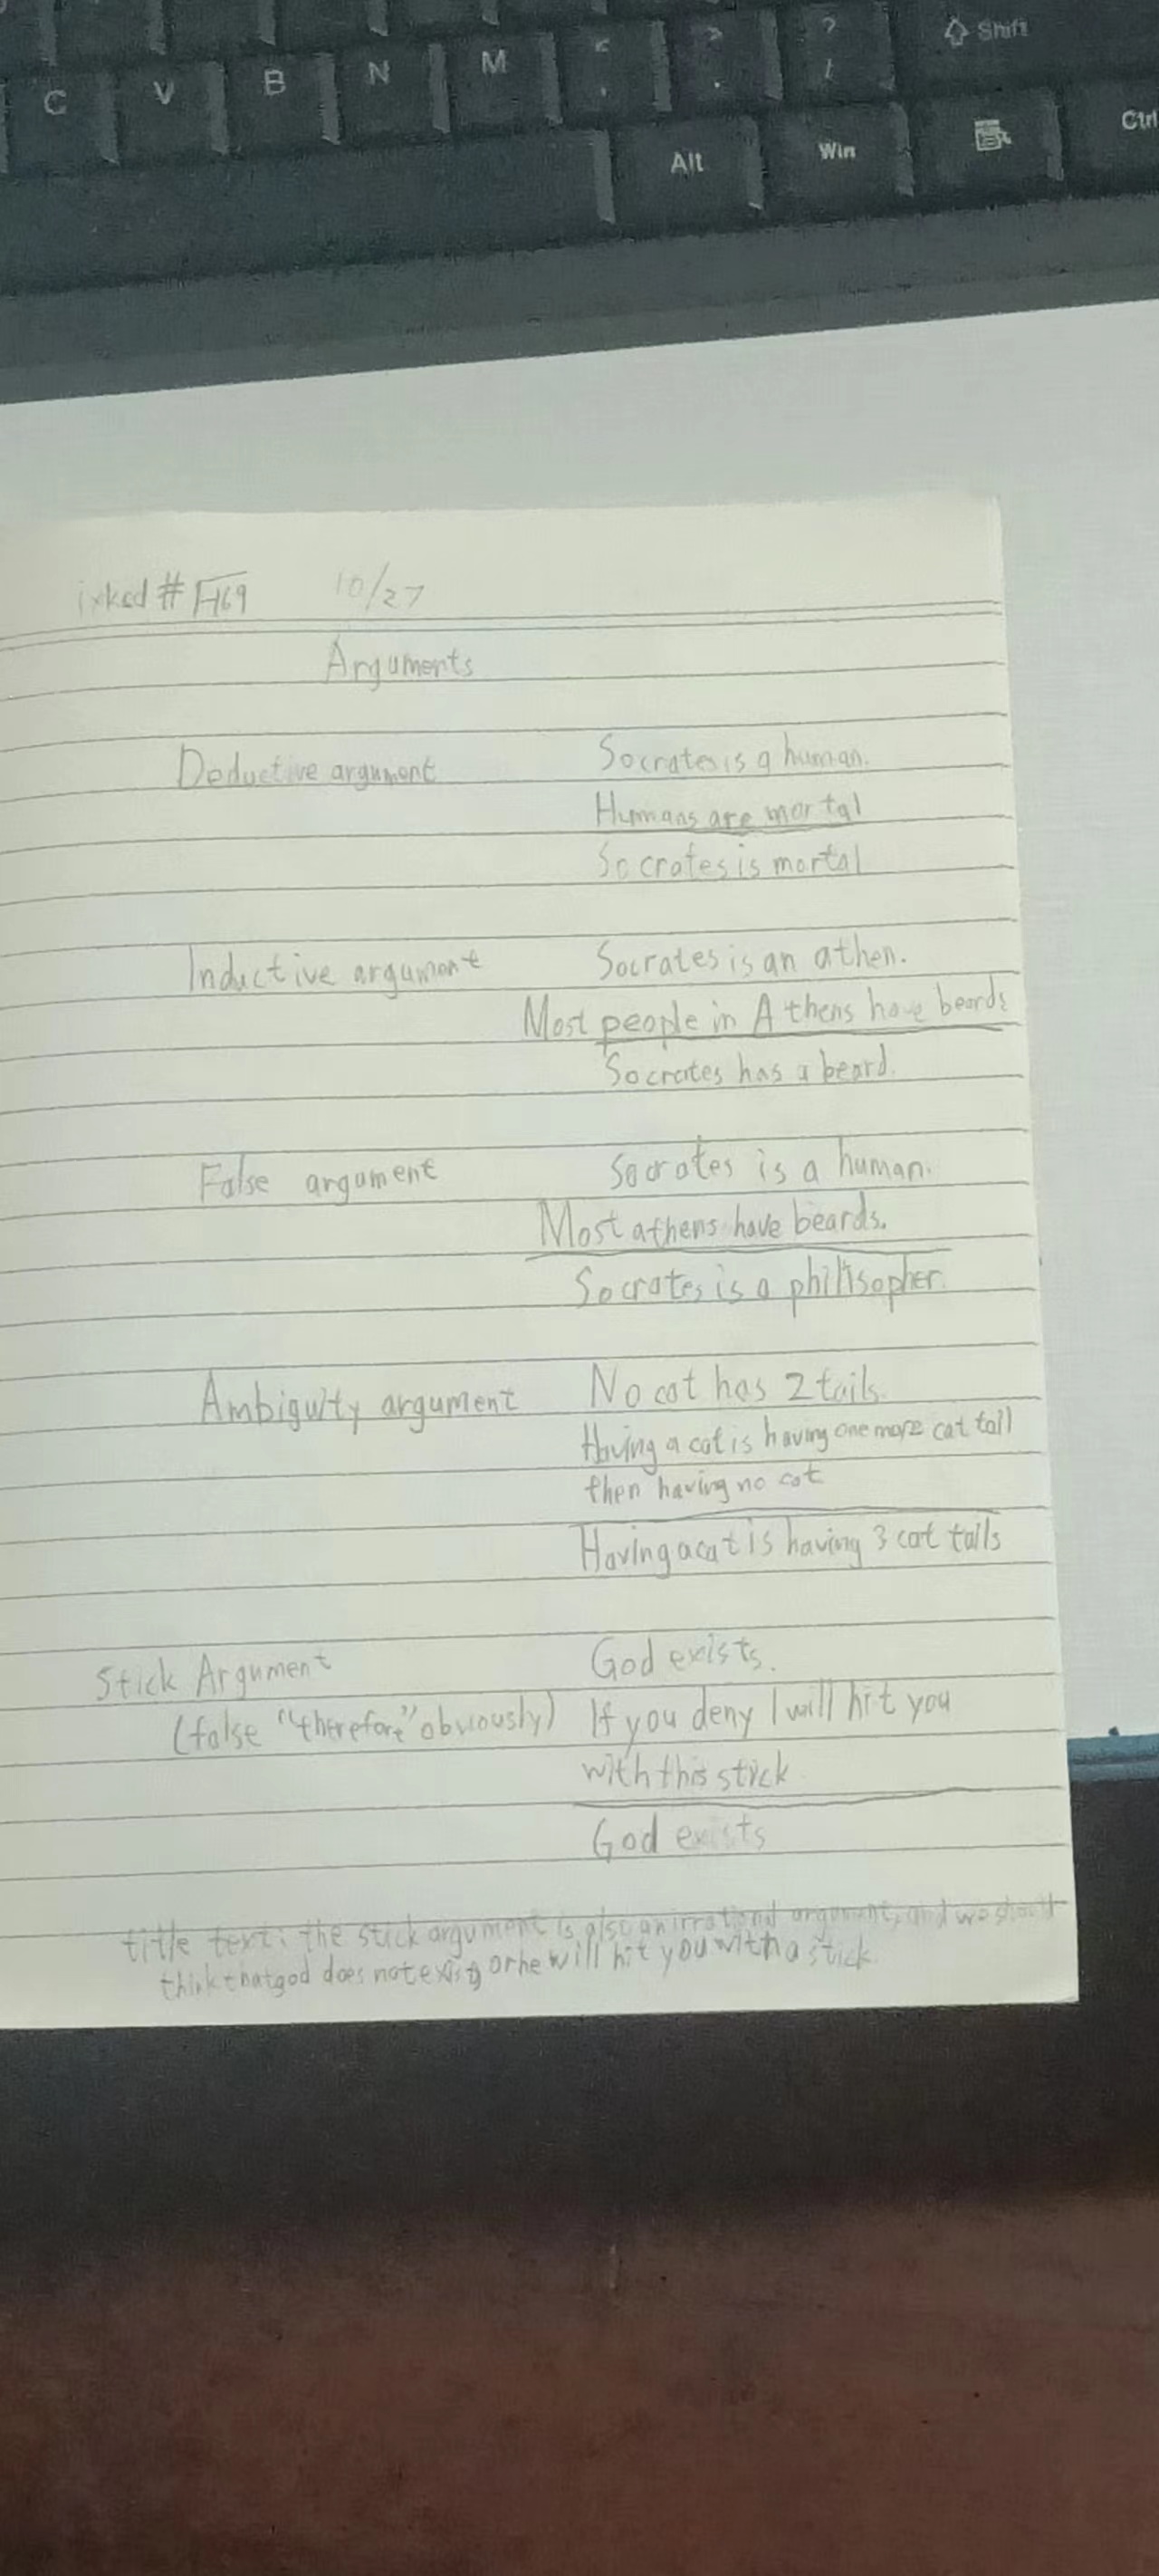 C V B N M < , > . ? / Shift
Alt Win Ctrl
ixkcd # √-169 10/27
Arguments
Deductive argument Socrates is a human.
Humans are mortal
Socrates is mortal
Inductive argument Socrates is an athen.
Most people in Athens have beards
Socrates has a beard.
False argument Socrates is a human.
Most athens have beards.
Socrates is a philisopher.
Ambiguity argument No cat has 2 tails.
Having a cat is having one more cat tail
then having no cat
Having a cat is having 3 cat tails
Stick Argument God exists.
(false "therefore" obviously) If you deny I will hit you
with this stick
God exists
title text: the stick argument is also an irrational argument, and we should
think that god does not exist or he will hit you with a stick.